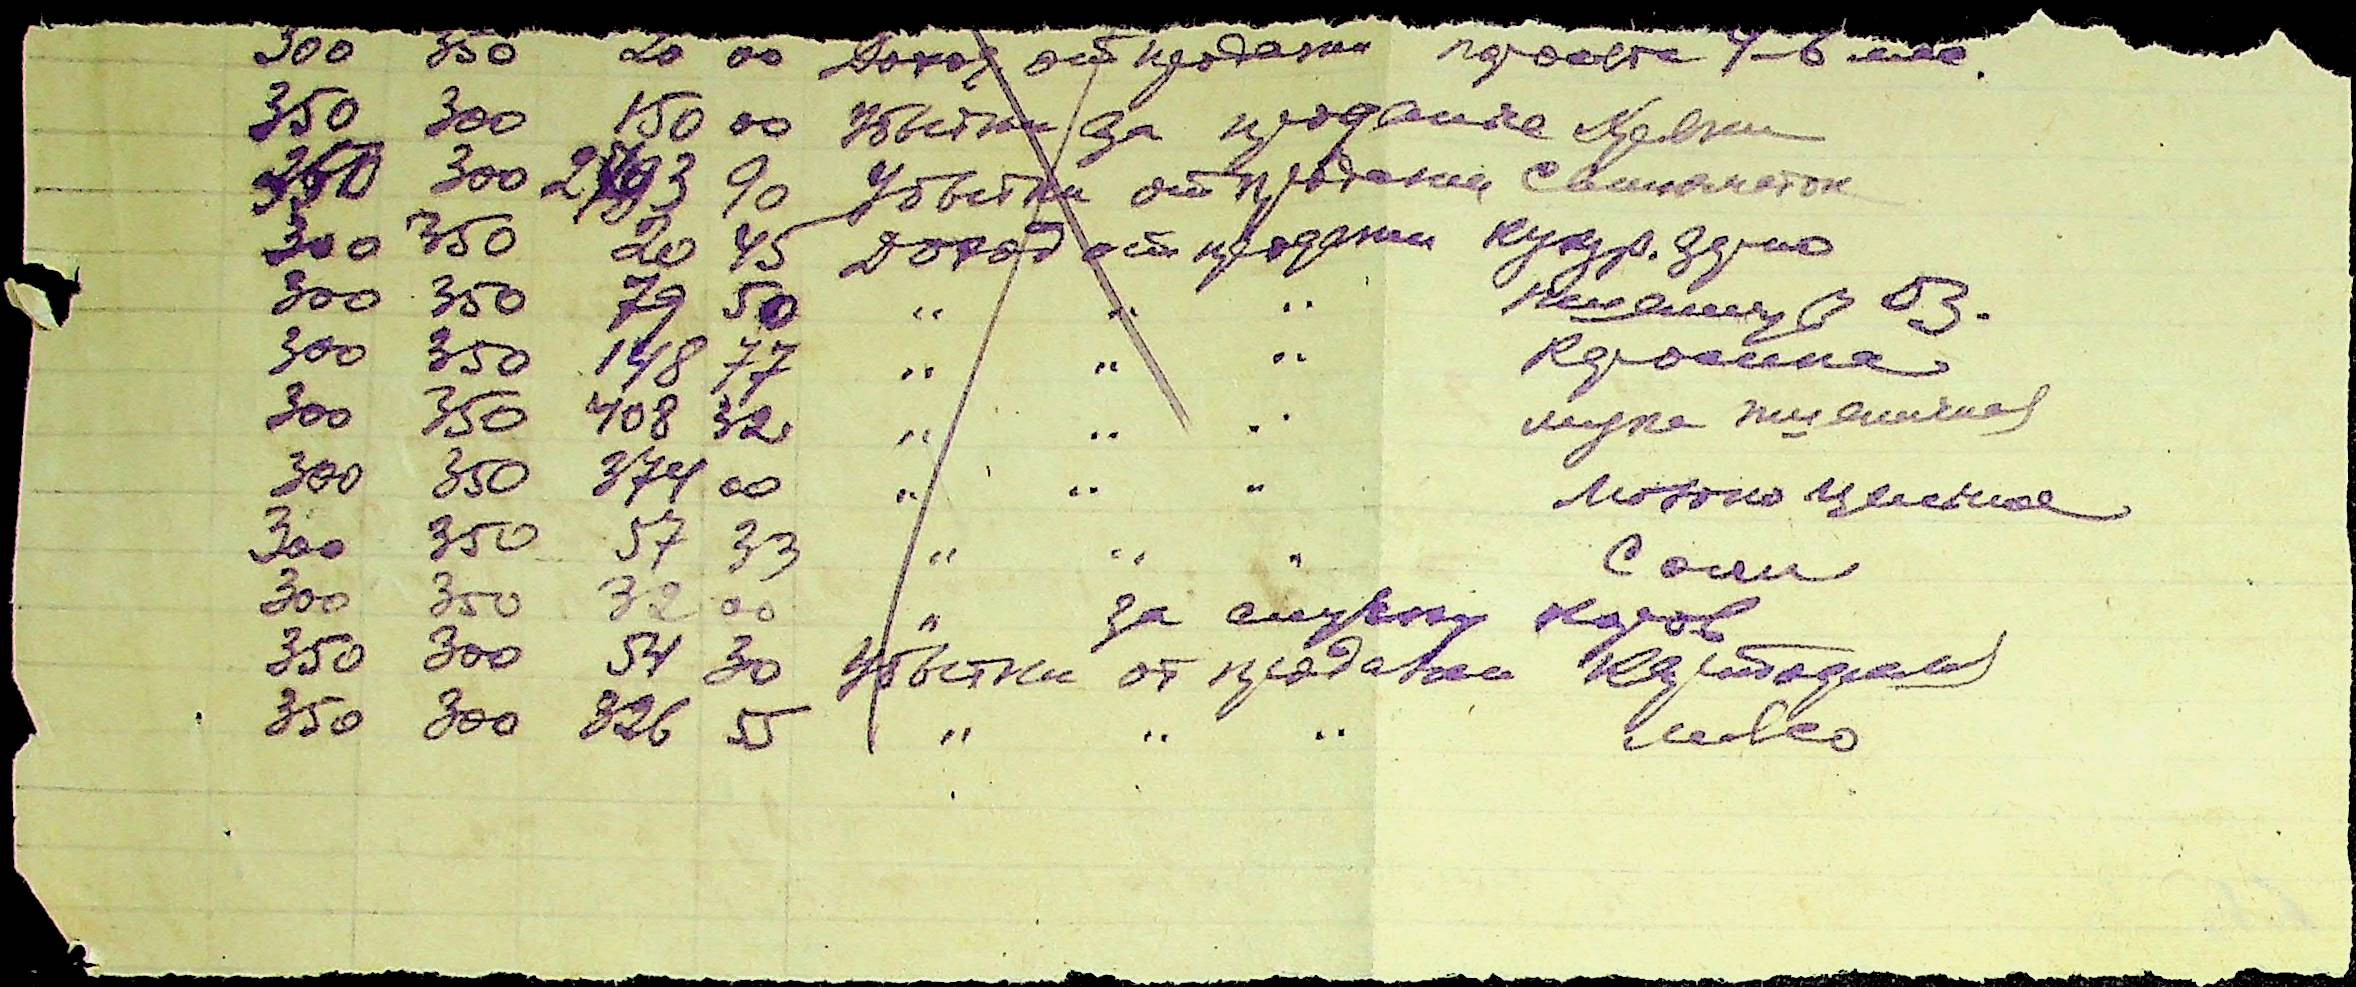 300 350 20 00 Доход от продажи
350 300 150 00 Убытки за
300 93 90 Убытки от продажи свиноматок
300 350 20 45 Доход от продажи кукур. зерно
300 350 79 50 " " " пшеницу
300 350 148 77 " " " керосина
300 350 408 32 " " " мука пшеничная
300 350 374 00 " " " молоко цельное
300 350 57 33 " " " Соли
300 350 32 00 " за случку коров
350 300 54 30 Убытки от продажи картофеля
350 300 326 55 " " " мясо